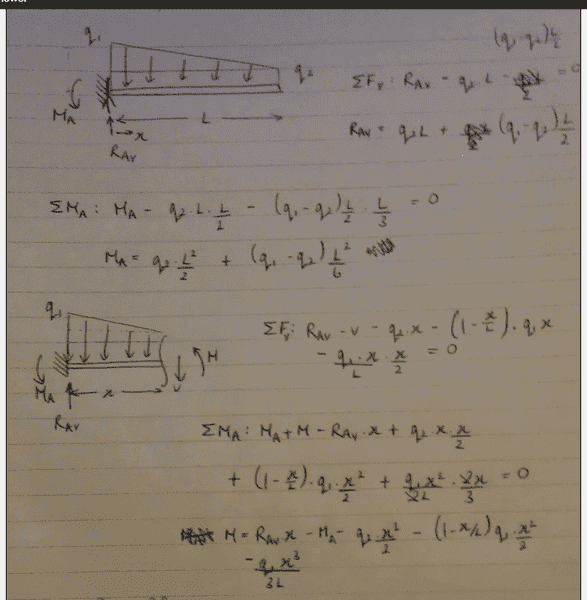 (q₁-q₂)L/2
q₁
q₂
M_A
L
x
R_AV
ΣF_V: R_AV - q₂ L - = 0
R_AV = q₂L + (q₁-q₂)L/2
ΣM_A: M_A - q₂·L·L/2 - (q₁-q₂)L/2·L/3 = 0
M_A = q₂·L²/2 + (q₁-q₂)L²/6
q₁
M
M_A
x
v
R_AV
ΣF_V: R_AV - v - q₂·x - (1-x/L)·q₁x
- q₁·x/L·x/2 = 0
ΣM_A: M_A + M - R_AV·x + q₂·x·x/2
+ (1-x/L)·q₁·x²/2 + q₁x²/2L·2x/3 = 0
M = R_AV x - M_A - q₂·x²/2 - (1-x/L)q₁·x²/2
- q₁x³/3L